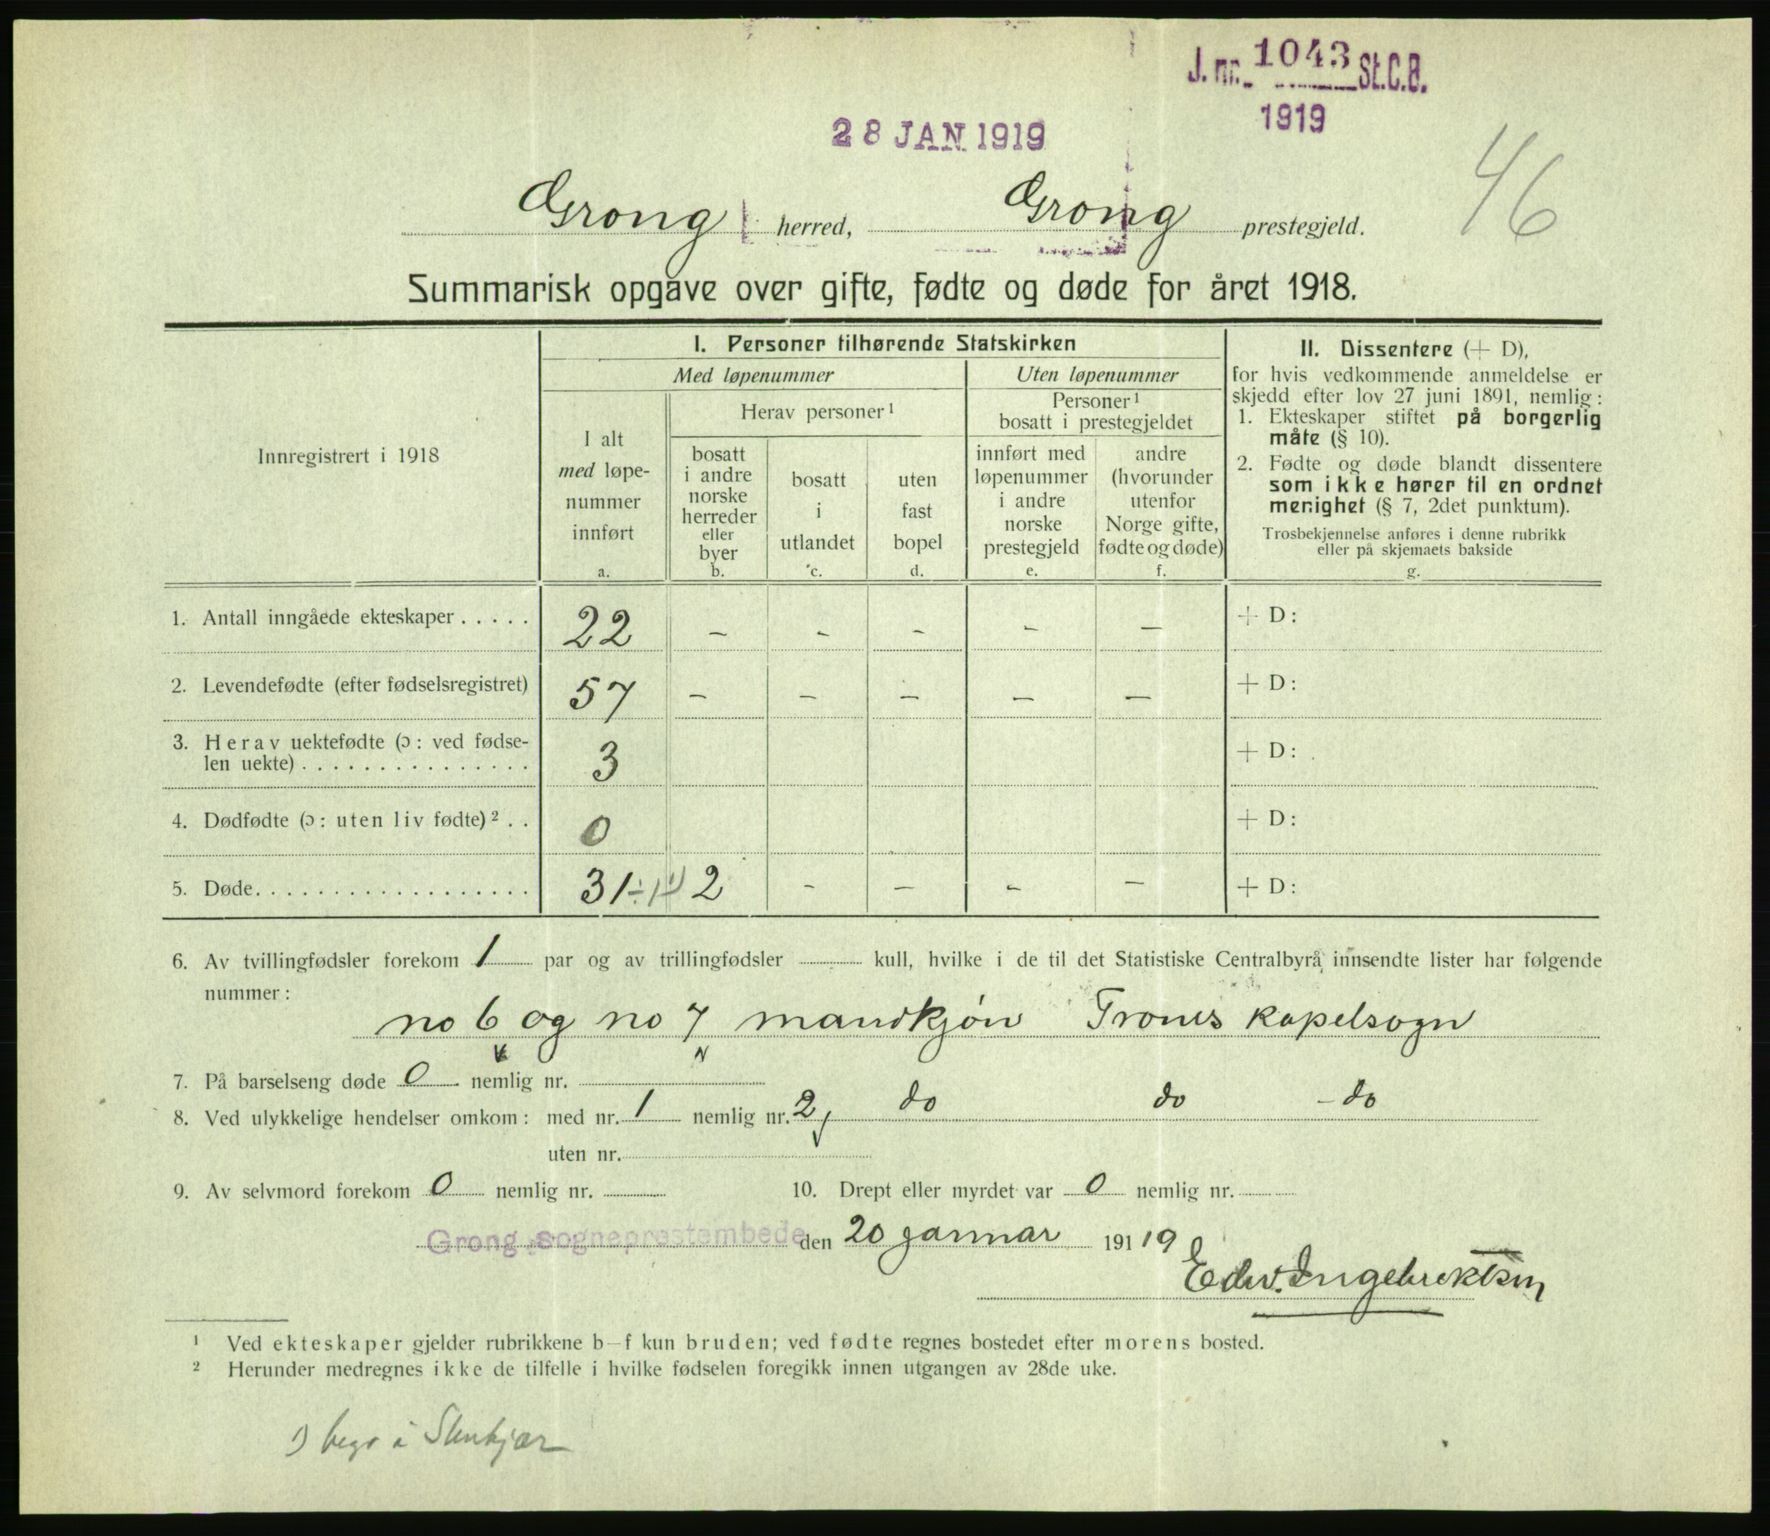 J. nr. 1043 St.C.B.
1919
28 JAN 1919
46
Grong herred, Grong prestegjeld.
Summarisk opgave over gifte, fødte og døde for året 1918.
Innregistrert i 1918
I. Personer tilhørende Statskirken
Med løpenummer
Uten løpenummer
I alt
med løpe-
nummer
innført
a.
Herav personer¹
bosatt
i andre
norske
herreder
eller
byer
b.
bosatt
i
utlandet
c.
uten
fast
bopel
d.
Personer¹
bosatt i prestegjeldet
innført med
løpenummer
i andre
norske
prestegjeld
e.
andre
(hvorunder
utenfor
Norge gifte,
fødte og døde)
f.
II. Dissentere (+ D),
for hvis vedkommende anmeldelse er
skjedd efter lov 27 juni 1891, nemlig:
1. Ekteskaper stiftet på borgerlig
måte (§ 10).
2. Fødte og døde blandt dissentere
som ikke hører til en ordnet
menighet (§ 7, 2det punktum).
Trosbekjennelse anføres i denne rubrikk
eller på skjemaets bakside
g.
1. Antall inngåede ekteskaper . . . . . 22 – – – – – + D:
2. Levendefødte (efter fødselsregistret) 57 – – – – – + D:
3. Herav uektefødte (ɔ: ved fødse-
len uekte) . . . . . . . . . . . . . . . 3 + D:
4. Dødfødte (ɔ: uten liv fødte)² . . 0 + D:
5. Døde. . . . . . . . . . . . . . . . . . 31 ÷1 ¹) 2 – – – – + D:
6. Av tvillingfødsler forekom 1 par og av trillingfødsler kull, hvilke i de til det Statistiske Centralbyrå innsendte lister har følgende
nummer:
no 6 og no 7 mandkjøn Trones kapelsogn
7. På barselseng døde 0 nemlig nr.
8. Ved ulykkelige hendelser omkom: med nr. 1 nemlig nr. 2, do do - do
uten nr.
9. Av selvmord forekom 0 nemlig nr. 10. Drept eller myrdet var 0 nemlig nr.
Grong sogneprestembede den 20 januar 191 19
Edv. Ingebrektsen
¹ Ved ekteskaper gjelder rubrikkene b–f kun bruden; ved fødte regnes bostedet efter morens bosted.
² Herunder medregnes ikke de tilfelle i hvilke fødselen foregikk innen utgangen av 28de uke.
1) begr i Stenkjær